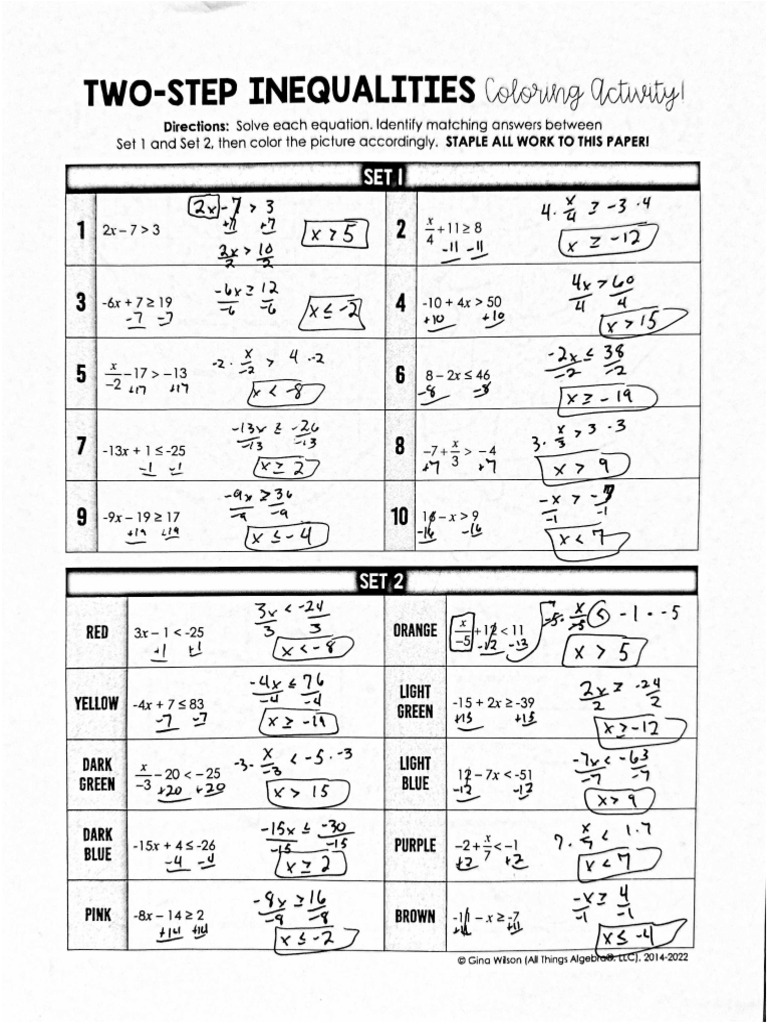 TWO-STEP INEQUALITIES Coloring Activity!
Directions: Solve each equation. Identify matching answers between
Set 1 and Set 2, then color the picture accordingly. STAPLE ALL WORK TO THIS PAPER!
SET 1
1 2x – 7 > 3
2x - 7 > 3
+7 +7
2x/2 > 10/2
x > 5
2 x/4 + 11 ≥ 8
-11 -11
4 · x/4 ≥ -3 · 4
x ≥ -12
3 -6x + 7 ≥ 19
-7 -7
-6x/-6 ≥ 12/-6
x ≤ -2
4 -10 + 4x > 50
+10 +10
4x/4 > 60/4
x > 15
5 x/-2 – 17 > –13
+17 +17
-2 · x/-2 > 4 · -2
x < -8
6 8 – 2x ≤ 46
-8 -8
-2x/-2 ≤ 38/-2
x ≥ -19
7 -13x + 1 ≤ -25
-1 -1
-13x/-13 ≤ -26/-13
x ≥ 2
8 –7 + x/3 > –4
+7 +7
3 · x/3 > 3 · 3
x > 9
9 -9x – 19 ≥ 17
+19 +19
-9x/-9 ≥ 36/-9
x ≤ -4
10 16 – x > 9
-16 -16
-x/-1 > -7/-1
x < 7
SET 2
RED 3x – 1 < -25
+1 +1
3x/3 < -24/3
x < -8
ORANGE x/-5 + 12 < 11
-12 -12
-5 · x/-5 < -1 · -5
x > 5
YELLOW -4x + 7 ≤ 83
-7 -7
-4x/-4 ≤ 76/-4
x ≥ -19
LIGHT GREEN -15 + 2x ≥ -39
+15 +15
2x/2 ≥ -24/2
x ≥ -12
DARK GREEN x/-3 – 20 < –25
+20 +20
-3 · x/-3 < -5 · -3
x > 15
LIGHT BLUE 12 – 7x < -51
-12 -12
-7x/-7 < -63/-7
x > 9
DARK BLUE -15x + 4 ≤ -26
-4 -4
-15x/-15 ≤ -30/-15
x ≥ 2
PURPLE –2 + x/7 < –1
+2 +2
7 · x/7 < 1 · 7
x < 7
PINK -8x – 14 ≥ 2
+14 +14
-8x/-8 ≥ 16/-8
x ≤ -2
BROWN -11 – x ≥ -7
+11 +11
-x/-1 ≥ 4/-1
x ≤ -4
© Gina Wilson (All Things Algebra®, LLC), 2014-2022